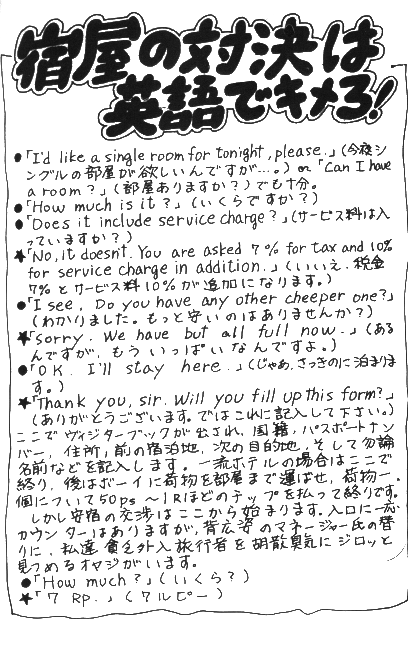 宿屋の対決は
英語でキメろ!
●「I'd like a single room for tonight, please.」(今夜シ
ングルの部屋が欲しいんですが…。) or 「Can I have
a room?」(部屋ありますか?)でも十分。
●「How much is it?」(いくらですか?)
●「Does it include service charge?」(サービス料は入
っていますか?)
★「No, it doesn't. You are asked 7% for tax and 10%
for service charge in addition.」(いいえ、税金
7%とサービス料10%が追加になります。)
●「I see. Do you have any other cheeper one?」
(わかりました。もっと安いのはありませんか?)
★「Sorry. We have but all full now.」(ある
んですが、もういっぱいなんですよ。)
●「OK. I'll stay here.」(じゃあ、さっきのに泊りま
す。)
★「Thank you, sir. Will you fill up this form?」
(ありがとうございます。ではこれに記入して下さい。)
ここでヴィジターブックが出され、国籍、パスポートナン
バー、住所、前の宿泊地、次の目的地、そして勿論
名前などを記入します。一流ホテルの場合はここで
終り、後はボーイに荷物を部屋まで運ばせ、荷物一
個について50ps〜1Rほどのチップを払って終りです。
しかし安宿の交渉はここから始まります。入口に一応
カウンターはありますが、背広姿のマネージャー氏の替
りに、私達貧乏外人旅行者を胡散臭気にジロッと
見つめるオヤジがいます。
●「How much?」(いくら?)
★「7 Rp.」(7ルピー)